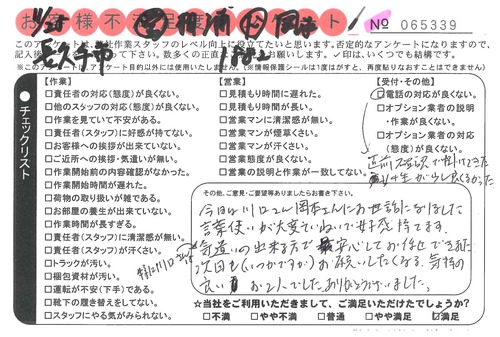 お客様不満足度アンケート
№ 065339
11/25
このアンケートは、弊社作業スタッフのレベル向上に役立てたいと思います。否定的なアンケートになりますので、
※このアンケートは、アンケート目的以外には使用いたしません。(※情報保護シール1度はがすと、再度貼りなおすことはできません)
チェックリスト
【作業】
□責任者の対応(態度)が良くない。
□他のスタッフの対応(態度)が良くない。
□作業を見ていて不安がある。
□責任者(スタッフ)に好感が持てない。
□お客様への挨拶が出来ていない。
□ご近所への挨拶・気遣いが無い。
□作業開始前の内容確認がなかった。
□作業開始時間が遅れた。
□荷物の取り扱いが雑である。
□お部屋の養生が出来ていない。
□作業時間が長すぎる。
□責任者(スタッフ)に清潔感が無い。
□責任者(スタッフ)が汗くさい。
□トラックが汚い。
□梱包資材が汚い。
□運転が不安(下手)である。
□靴下の履き替えをしてない。
□スタッフにやる気がみられない。
【営業】
□見積もり時間に遅れた。
□見積もり時間が長い。
□営業マンに清潔感が無い。
□営業マンが煙草くさい。
□営業マンが汗くさい。
□営業態度が良くない。
□営業の説明と作業が一致してない。
【受付・その他】
□電話の対応が良くない。
□オプション業者の説明
・作業が良くない。
□オプション業者の対応
(態度)が良くない。
その他、ご意見・ご要望等ありましたらお書き下さい。
今日は川口さん岡本さんにお世話になりました
言葉使いが大変ていねいで好感持てます。
気遣いの出来る方で安心してお任せできました
次回も(いつかですが)お願いしたくなる気持の
良いお2人でした。ありがとうございました。
☆当社をご利用いただきまして、ご満足いただけたでしょうか?
□不満 □やや不満 □普通 □やや満足 ☑満足